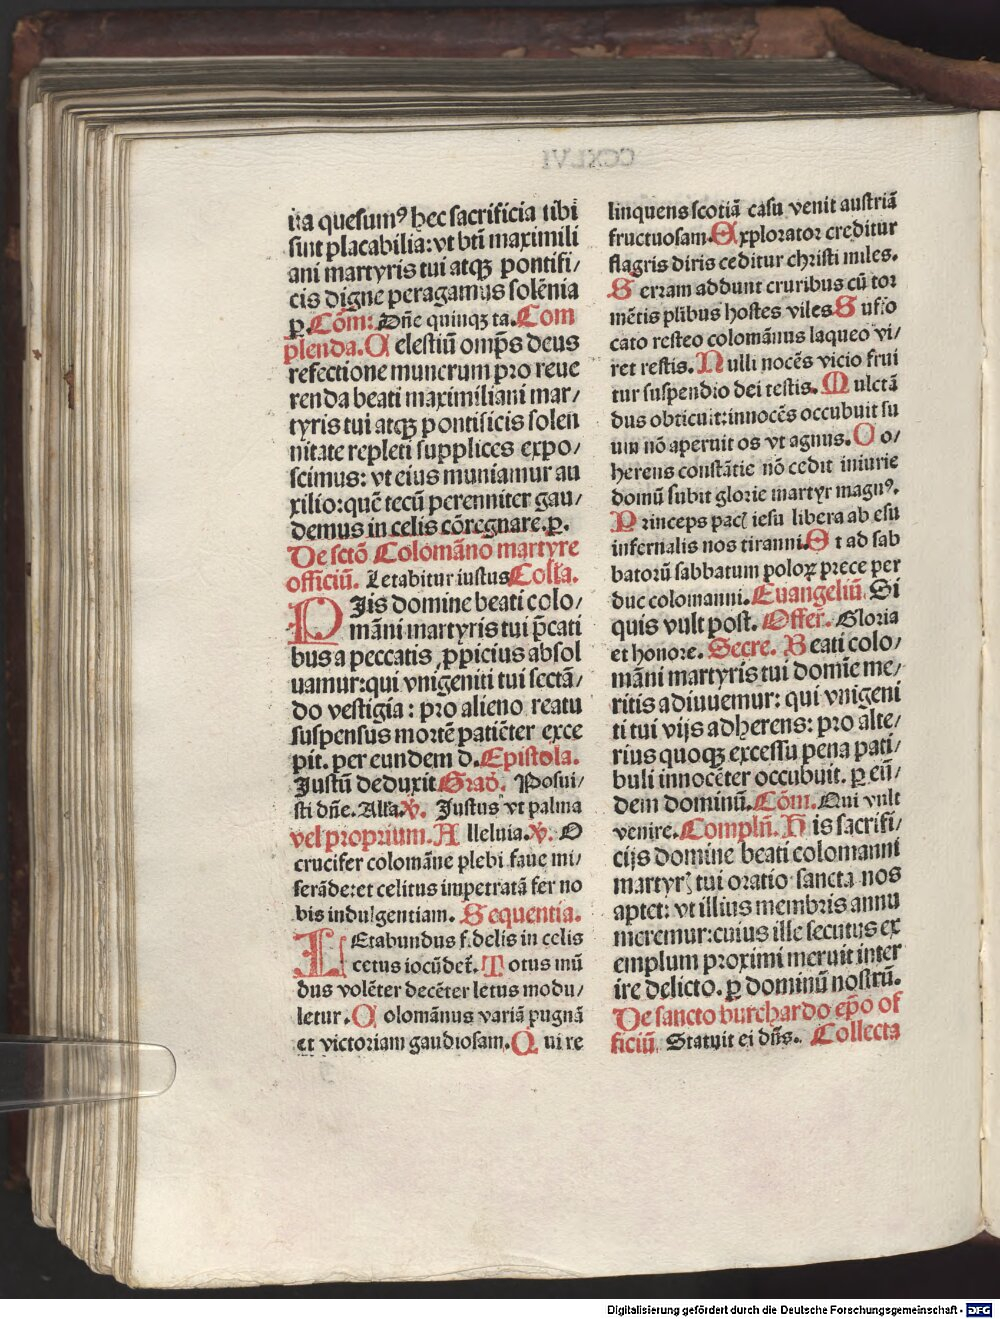 ita quesumꝰ hec sacrificia tibi
sint placabilia: vt bti̅ maximili
ani martyris tui atqꝫ pontifi/
cis digne peragamus sole̅nia
ꝑ. Co̅m: Dn̅e quinqꝫ ta. Com
plenda. C elestiu̅ omp̅s deus
refectione munerum pro reue
renda beati maximiliani mar/
tyris tui atqꝫ pontificis solen
nitate repleti supplices expo/
scimus: vt eius muniamur au
xilio: que̅ tecu̅ perenniter gau/
demus in celis co̅regnare. ꝑ.
De scto̅ Coloma̅no martyre
officiu̅. Letabitur iustus Coll̅a.
PIis domine beati colo/
ma̅ni martyris tui p̅cati
bus a peccatis ꝓpicius absol
uamur: qui vnigeniti tui secta̅/
do vestigia: pro alieno reatu
suspensus morte̅ patie̅ter exce
pit. per eundem d. Epistola.
Justu̅ deduxit Grad̅. Posui/
sti dn̅e. All̅a. ℣. Justus vt palma
vel proprium. A lleluia. ℣. O
crucifer coloma̅ne plebi faue mi/
sera̅de: et celitus impetrata̅ fer no
bis indulgentiam. Sequentia.
LEtabundus fidelis in celis
cetus iocu̅det̅. T otus mu̅
dus vole̅ter dece̅ter letus modu/
letur. C oloma̅nus varia̅ pugna̅
et victoriam gaudiosam. Q ui re
linquens scotia̅ casu venit austria̅
fructuosam. E xplorator creditur
flagris diris ceditur christi miles.
S erram addunt cruribus cu̅ tor
me̅tis plibus hostes viles S uffo
cato resteo coloma̅nus laqueo vi/
ret restis. N ulli noce̅s vicio frui
tur suspendio dei testis. M ulcta̅
dus obticuit: innoce̅s occubuit su
um no̅ aperuit os vt agnus. C o/
herens consta̅tie no̅ cedit iniurie
domu̅ subit glorie martyr magnꝰ.
P rinceps pacꝭ iesu libera ab esu
infernalis nos tiranni. E t ad sab
batoru̅ sabbatum poloꝝ prece per
duc colomanni. Euangeliu̅. Si
quis vult post. Offer̅. Gloria
et honore. Secre. B eati colo/
ma̅ni martyris tui domi̅e me/
ritis adiuuemur: qui vnigeni
ti tui vijs adherens: pro alte/
rius quoqꝫ excessu pena pati/
buli innoce̅ter occubuit. ꝑ eu̅/
dem dominu̅. Co̅m. Qui vult
venire. Compln̅. H is sacrifi/
cijs domine beati colomanni
martyrꝭ tui oratio sancta nos
aptet: vt illius membris annu
meremur: cuius ille secutus ex
emplum proximi meruit inter
ire delicto. ꝑ dominu̅ nostru̅.
De sancto burchardo ep̅o of
ficiu̅. Statuit ei dn̅s. Collecta
CCXLVI
Digitalisierung gefördert durch die Deutsche Forschungsgemeinschaft - DFG